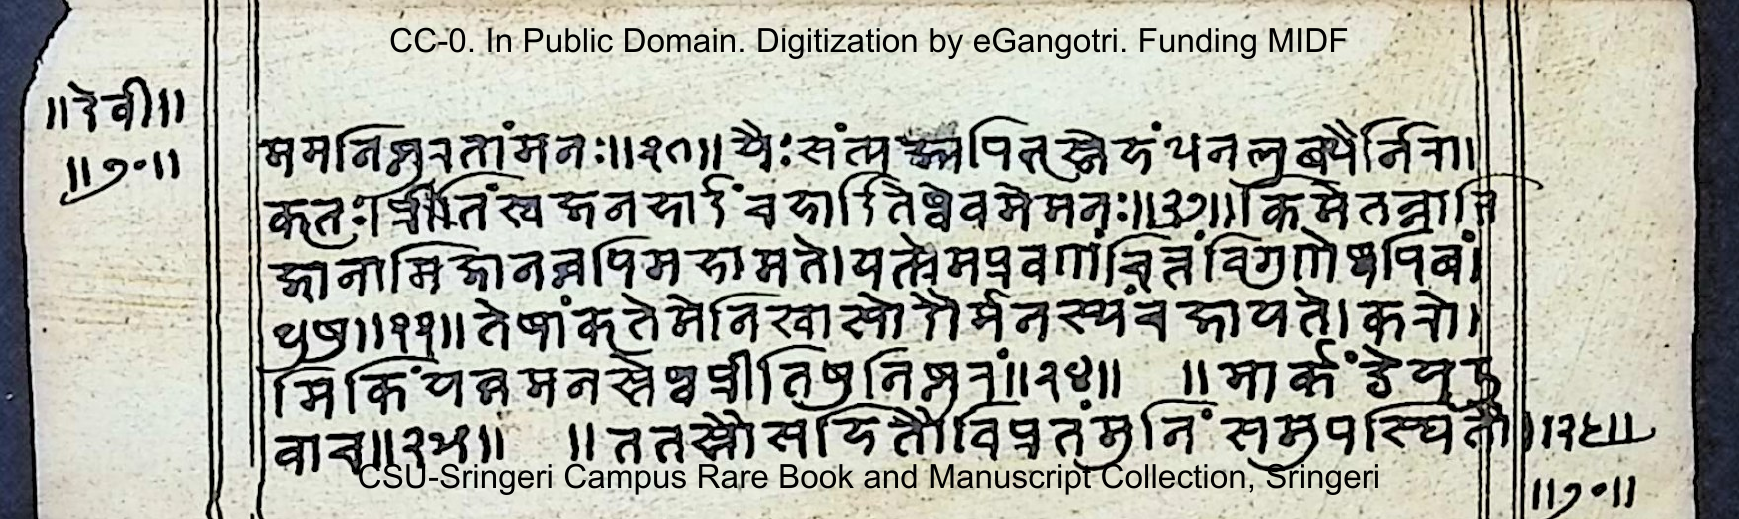 CC-0. In Public Domain. Digitization by eGangotri. Funding MIDF
॥देवी॥
॥७०॥
ममनिष्ठुरतांमनः॥३०॥यैःसंत्यज्यपितृस्नेहंधनलुब्धैर्निरा।
कृतः।प्रीतिंस्वजनहार्दंचहार्दितेष्वेवमेमनः॥३१॥किमेतन्नाभि
जानामिजानन्नपिमहामते।यत्प्रेमप्रवणंचित्तंविगुणेष्वपिबं
धुषु॥३२॥तेषांकृतेमेनिश्वासोदौर्मनस्यंचजायते।करो।
मिकिंयन्नमनस्तेष्वप्रीतिषुनिष्ठुरं॥३४॥ ॥मार्कंडेयउ
वाच॥३५॥ ॥ततस्तौसहितौविप्रतंमुनिंसमुपस्थितौ॥३६॥
CSU-Sringeri Campus Rare Book and Manuscript Collection, Sringeri
॥७०॥